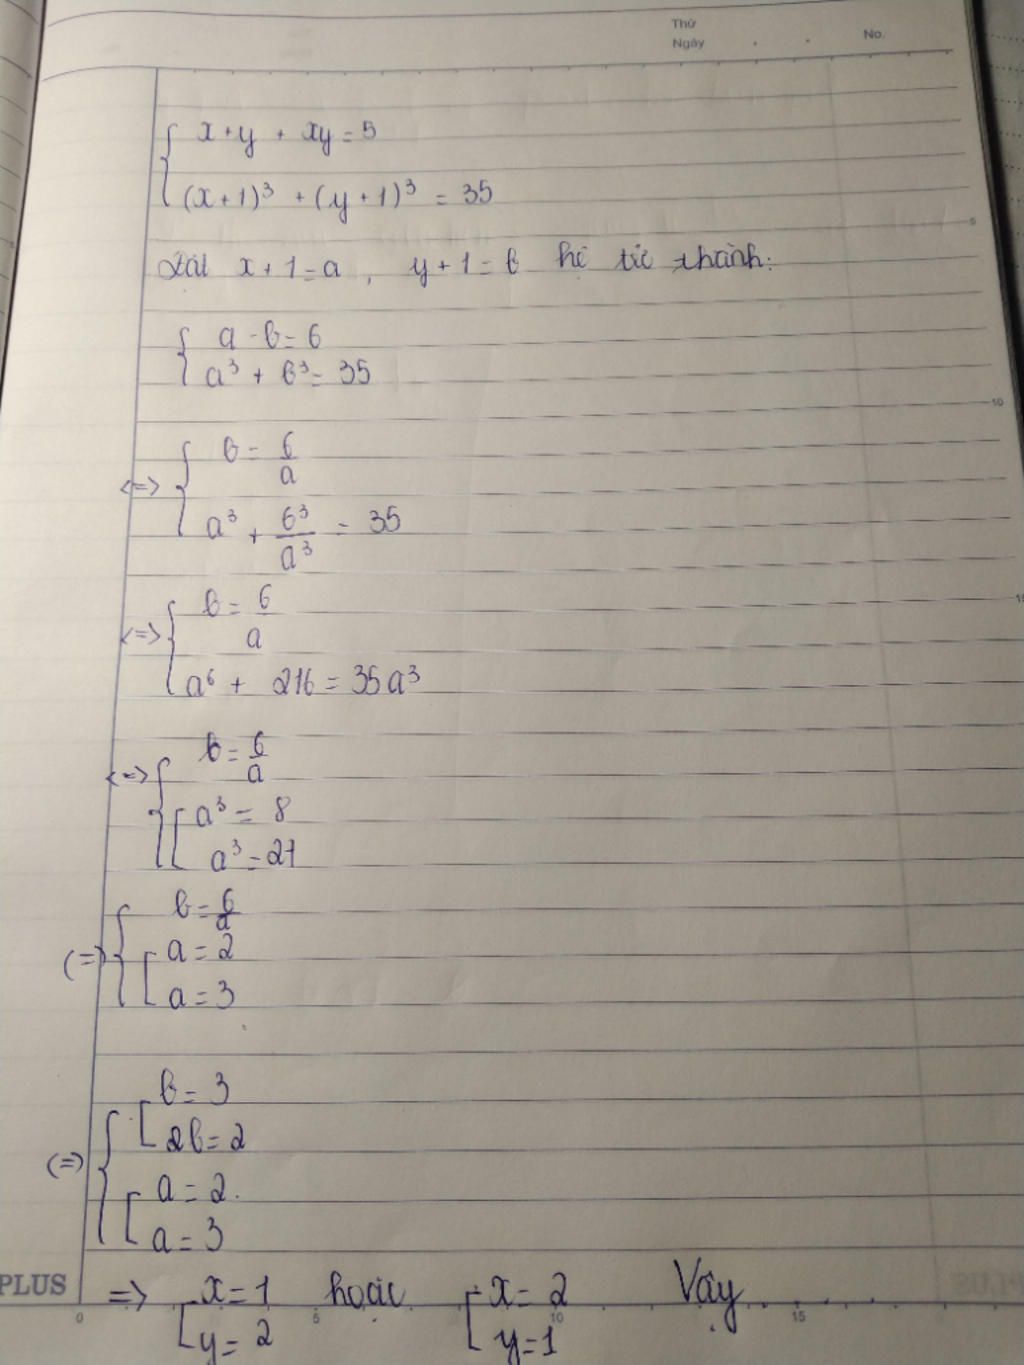 Thứ
Ngày . . No.
x+y + xy = 5
(x+1)³ + (y+1)³ = 35
Đặt x+1=a, y+1=b hệ trở thành:
a·b=6
a³ + b³=35
5
10
b = 6/a
<=>
a³ + 6³/a³ = 35
b = 6/a
<=>
a⁶ + 216 = 35a³
15
b = 6/a
<=>
a³ = 8
a³ = 27
b = 6/a
(=)
a = 2
a = 3
b = 3
2b = 2
(=)
a = 2.
a = 3
PLUS => x=1 hoặc x=2 Vậy . . . .
y=2 y=1
0 5 10 15